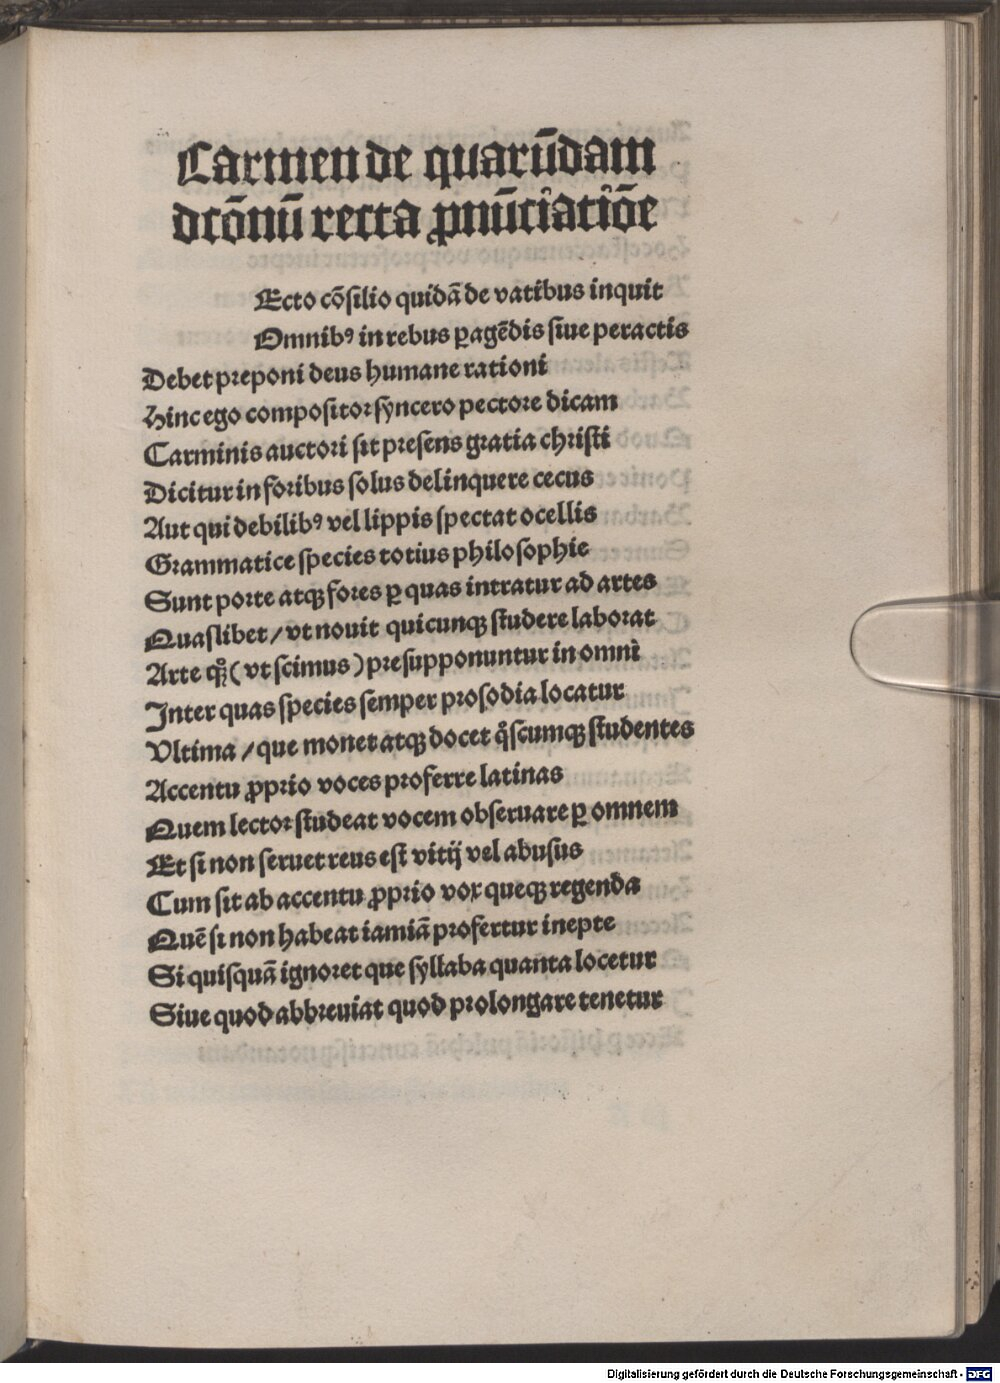 Carmen de quarūdam
dctōnū recta ꝓnūciatiōe
Ecto cōsilio quidā de vatibus inquit
Omnibꝰ in rebus ꝑagēdis siue peractis
Debet preponi deus humane rationi
Hinc ego compositor syncero pectore dicam
Carminis auctori sit presens gratia christi
Dicitur in foribus solus delinquere cecus
Aut qui debilibꝰ vel lippis spectat ocellis
Grammatice species totius philosophie
Sunt porte atqꝫ fores ꝑ quas intratur ad artes
Quaslibet / vt nouit quicunqꝫ studere laborat
Arte (vt scimus) presupponuntur in omni
Inter quas species semper prosodia locatur
Vltima / que monet atqꝫ docet q̊scumqꝫ studentes
Accentu ꝓprio voces proferre latinas
Quem lector studeat vocem obseruare ꝑ omnem
Et si non seruet reus est vitij vel abusus
Cum sit ab accentu ꝓprio vox queqꝫ regenda
Quē si non habeat iamiā profertur inepte
Si quisquā ignoret que syllaba quanta locetur
Siue quod abbreuiat quod prolongare tenetur
Digitalisierung gefördert durch die Deutsche Forschungsgemeinschaft - DFG